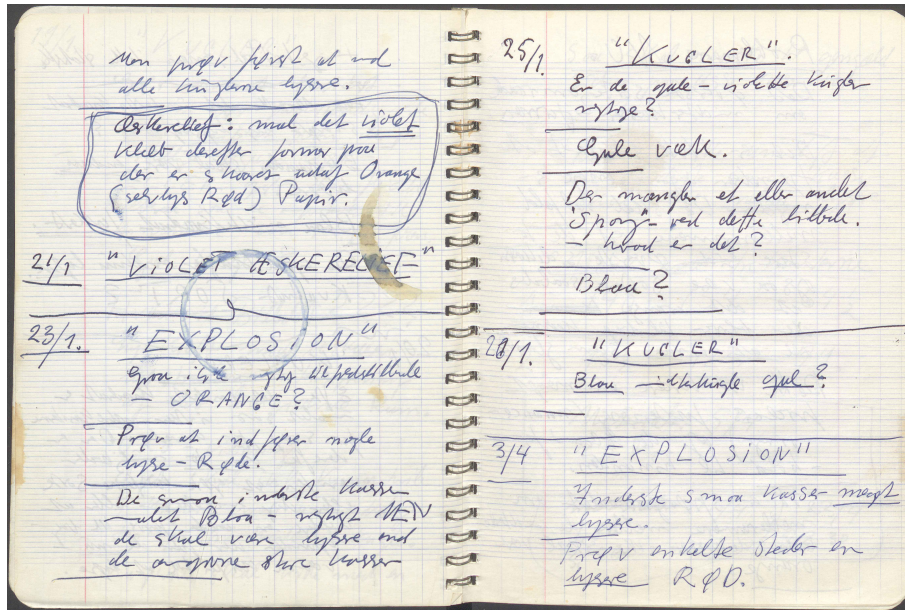 Men prøv først at
alle kuglerne lysere.
Æskerelief: mal det violet
klæb derefter former paa
der er skaaret ud af Orange
(selvlys Rød) Papir.
21/1 "VIOLET ÆSKERELIEF"
23/1. "EXPLOSION"
Graa ikke rigtig
— ORANGE?
Prøv at indføre nogle
lyse - Røde.
De smaa inderste Kasser
malet Blaa - rigtigt MEN
de skal være lysere end
de store Kasser
25/1. "KUGLER".
Er de gule - violette Kugler
rigtige?
Gule væk.
Der mangler et eller andet
"Spong" ved dette billede.
— hvad er det?
Blaa?
"KUGLER"
Blaa gule?
3/4 "EXPLOSION"
Inderste smaa Kasser meget
lysere.
Prøv enkelte steder en
lysere RØD.